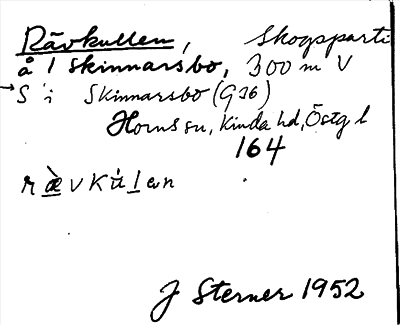 Rävkullen, Skogsparti
å 1 Skinnarsbo, 300 m V
→ S i Skinnarsbo (G36)
Horns sn, Kinda hd, Östg l
164
r æ̀ v k ù l e n
J Sterner 1952